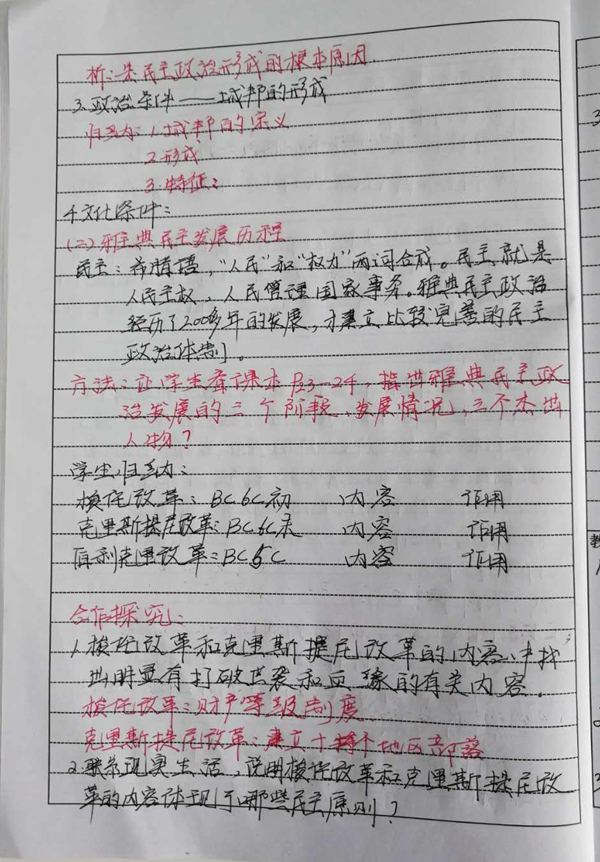 析：是民主政治形成的根本原因
3.政治条件——城邦的形成
归纳：1.城邦的定义
2.形成
3.特征：
4.文化条件：
(二)雅典民主发展历程
民主：希腊语，"人民"和"权力"两词合成。民主就是
人民主权，人民管理国家事务。雅典民主政治
经历了200多年的发展，才建立比较完善的民主
政治体制。
方法：让学生看课本P23-24，指出雅典民主政
治发展的三个阶段、发展情况、三个杰出
人物？
学生归纳：
梭伦改革：BC6C初 内容 作用
克里斯提尼改革：BC6C末 内容 作用
伯利克里改革：BC5C 内容 作用
合作探究：
1.梭伦改革和克里斯提尼改革的内容中找
出明显有打破世袭和血缘的有关内容。
梭伦改革：财产等级制度
克里斯提尼改革：建立十个地区部落
2.联系现实生活，说明梭伦改革和克里斯提尼改
革的内容体现了哪些民主原则？